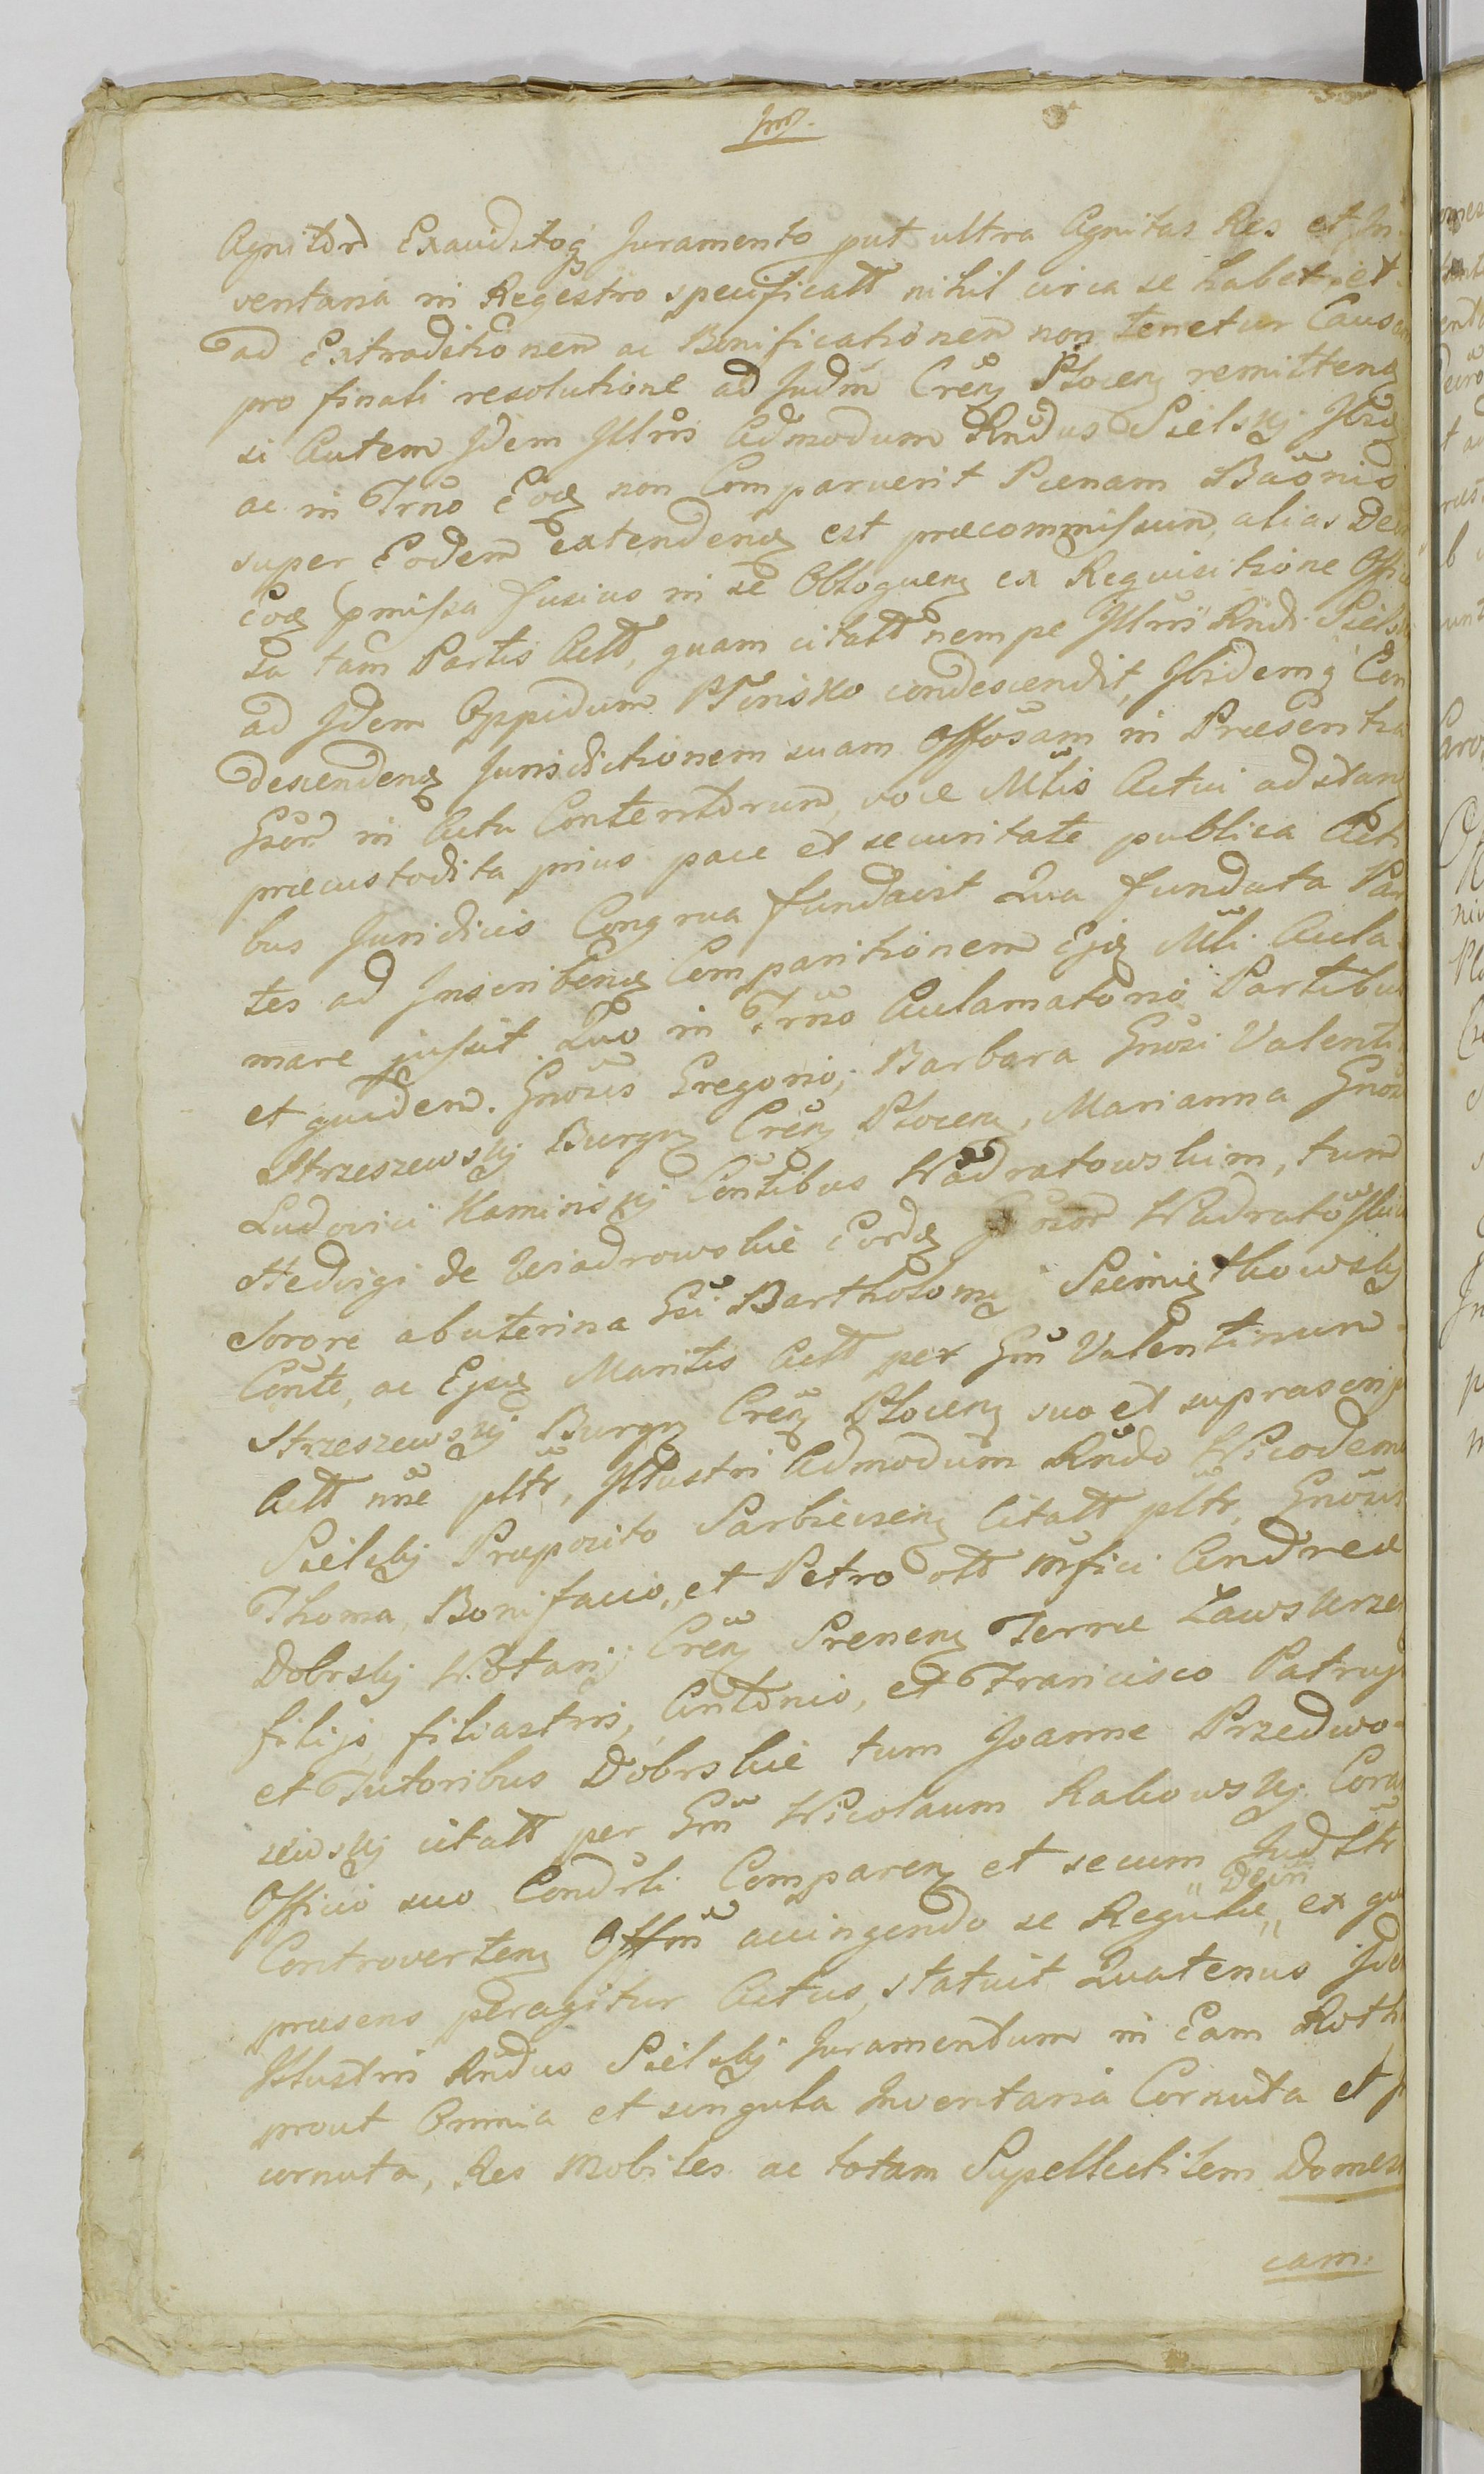 Agnitor Exauditoq Juramento put ultra Agnitas Res et In-
ventaria in Regestro specificatt nihil circa se habet et
ad Extraditionem ac Bonificationem non tenetur Causam
pro finali resolutione ad Judm Cren Plocen remitten
si Autem Idem Illris Admodum Rndus Sielskj Ibid
ac in Trno Eoq non Comparuerit Pœnam Baonis
super Eodem extenden est præcommissum, alias Decr
Eoq pmissa fusius in se Obloquen ex Requisitione Offi
sa tam Partis Actt, quam citatt nempe Illris Rndi Sielski
ad Idem Oppidum condescendit, Ibidemq Con
descenden Jurisdictionem suam Offosam in Præsentia
Gsor in Actu Contentorum, voce Mlis Actui adstan
præcustodita prius pace et securitate publica Acti
bus Juridicis Congrua fundavit Qua fundata Par
tes ad Inscriben Comparitionem Ejq Mli Accla
mare jussit Quo in Trno Acclamatorio Partibus
et quidem. Gnosis Gregorio, Barbara Gnosi Valenti
Strzeszewskj Burgn Cren Plocen, Marianna Gnosi
Ludovici Kaminskj Contibus Nadratowskim, tum
Hedvigi de Wiadrowskie Eord Gnosor Nadratowskich
Sorore abuterina Gsi Bartholomej Sciemięthowskj
Conte, ac Ejsq Maritis Actt per Gm Valentinum
Strzeszewskj Burgn Cren Plocen suo et suprascrip
Actt nne pltr, Illustri Admodum Rndo Nicodemo
Sielskj Præposito Sarbiewien Citatt pltr, Gnosis
Thoma, Bonifacio, et Petro ott Mfici Andreæ
Dobrskj Notarij Cren Srenen Terræ Zawskrzen
filijs filiastris, Antonio, et Francisco Patrujs
et Tutoribus Dobrskie tum Joanne Przedwo-
jewskj citatt per Gm Nicolaum Rakowskj Coram
Officio suo Condrli Comparen et secum Judltr
Controverten Offm accingendo se Regulæ " Decri " ex quo
præsens peragitur Actus, statuit Quatenus Idem
Illustris Rndus Sielskj Juramentum in Eam Roth
prout Omnia et singula Inventaria Cornuta et
cornuta, Res Mobiles ac totam Supellectilem Domesti
cam.